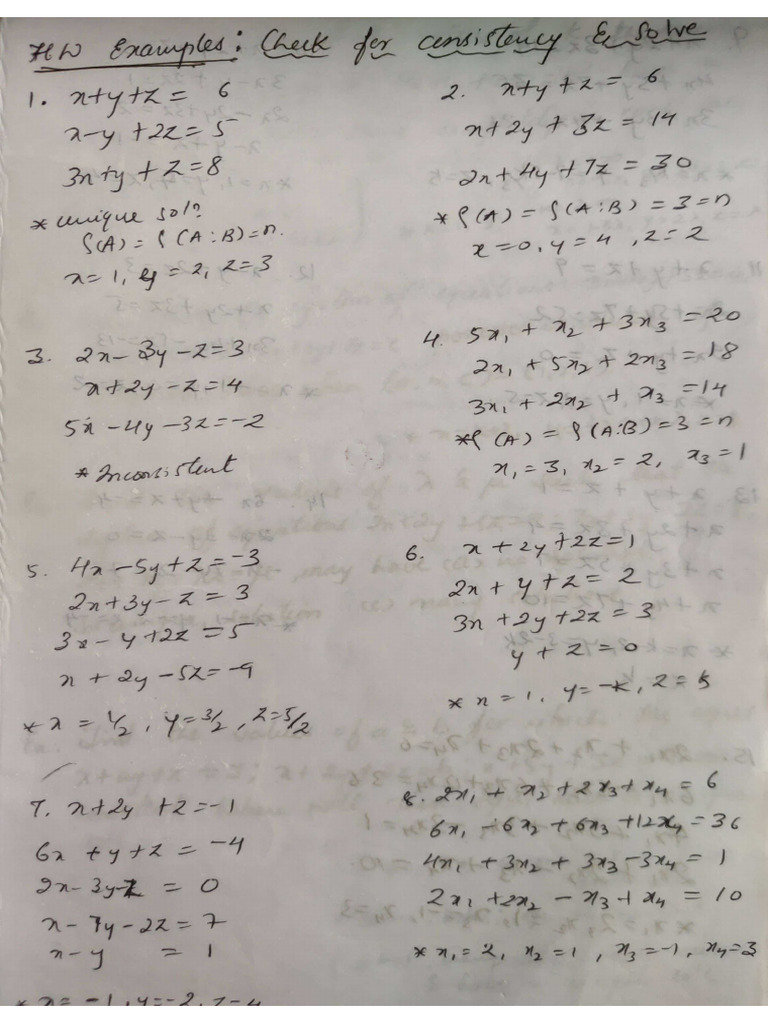 HW Examples: Check for consistency & solve
1. x+y+z= 6
x-y+2z=5
3x+y+z=8
* unique solⁿ
ρ(A)=ρ(A:B)=n.
x=1, y=2, z=3
2. x+y+z= 6
x+2y+3z=14
2x+4y+7z=30
*ρ(A)=ρ(A:B)=3=n
x=0, y=4, z=2
3. 2x-3y-z=3
x+2y-z=4
5x-4y-3z=-2
* Inconsistent
4. 5x₁+x₂+3x₃=20
2x₁+5x₂+2x₃=18
3x₁+2x₂+x₃=14
*ρ(A)=ρ(A:B)=3=n
x₁=3, x₂=2, x₃=1
5. 4x-5y+z=-3
2x+3y-z=3
3x-y+2z=5
x+2y-5z=-9
* x=1/2, y=3/2, z=5/2
6. x+2y+2z=1
2x+y+z=2
3x+2y+2z=3
y+z=0
* x=1, y=-k, z=k
7. x+2y+z=-1
6x+y+z=-4
2x-3y-z=0
x-7y-2z=7
x-y =1
* x=-1, y=-2, z=4
8. 2x₁+x₂+2x₃+x₄=6
6x₁-6x₂+6x₃+12x₄=36
4x₁+3x₂+3x₃-3x₄=1
2x₁+2x₂-x₃+x₄=10
* x₁=2, x₂=1, x₃=-1, x₄=3